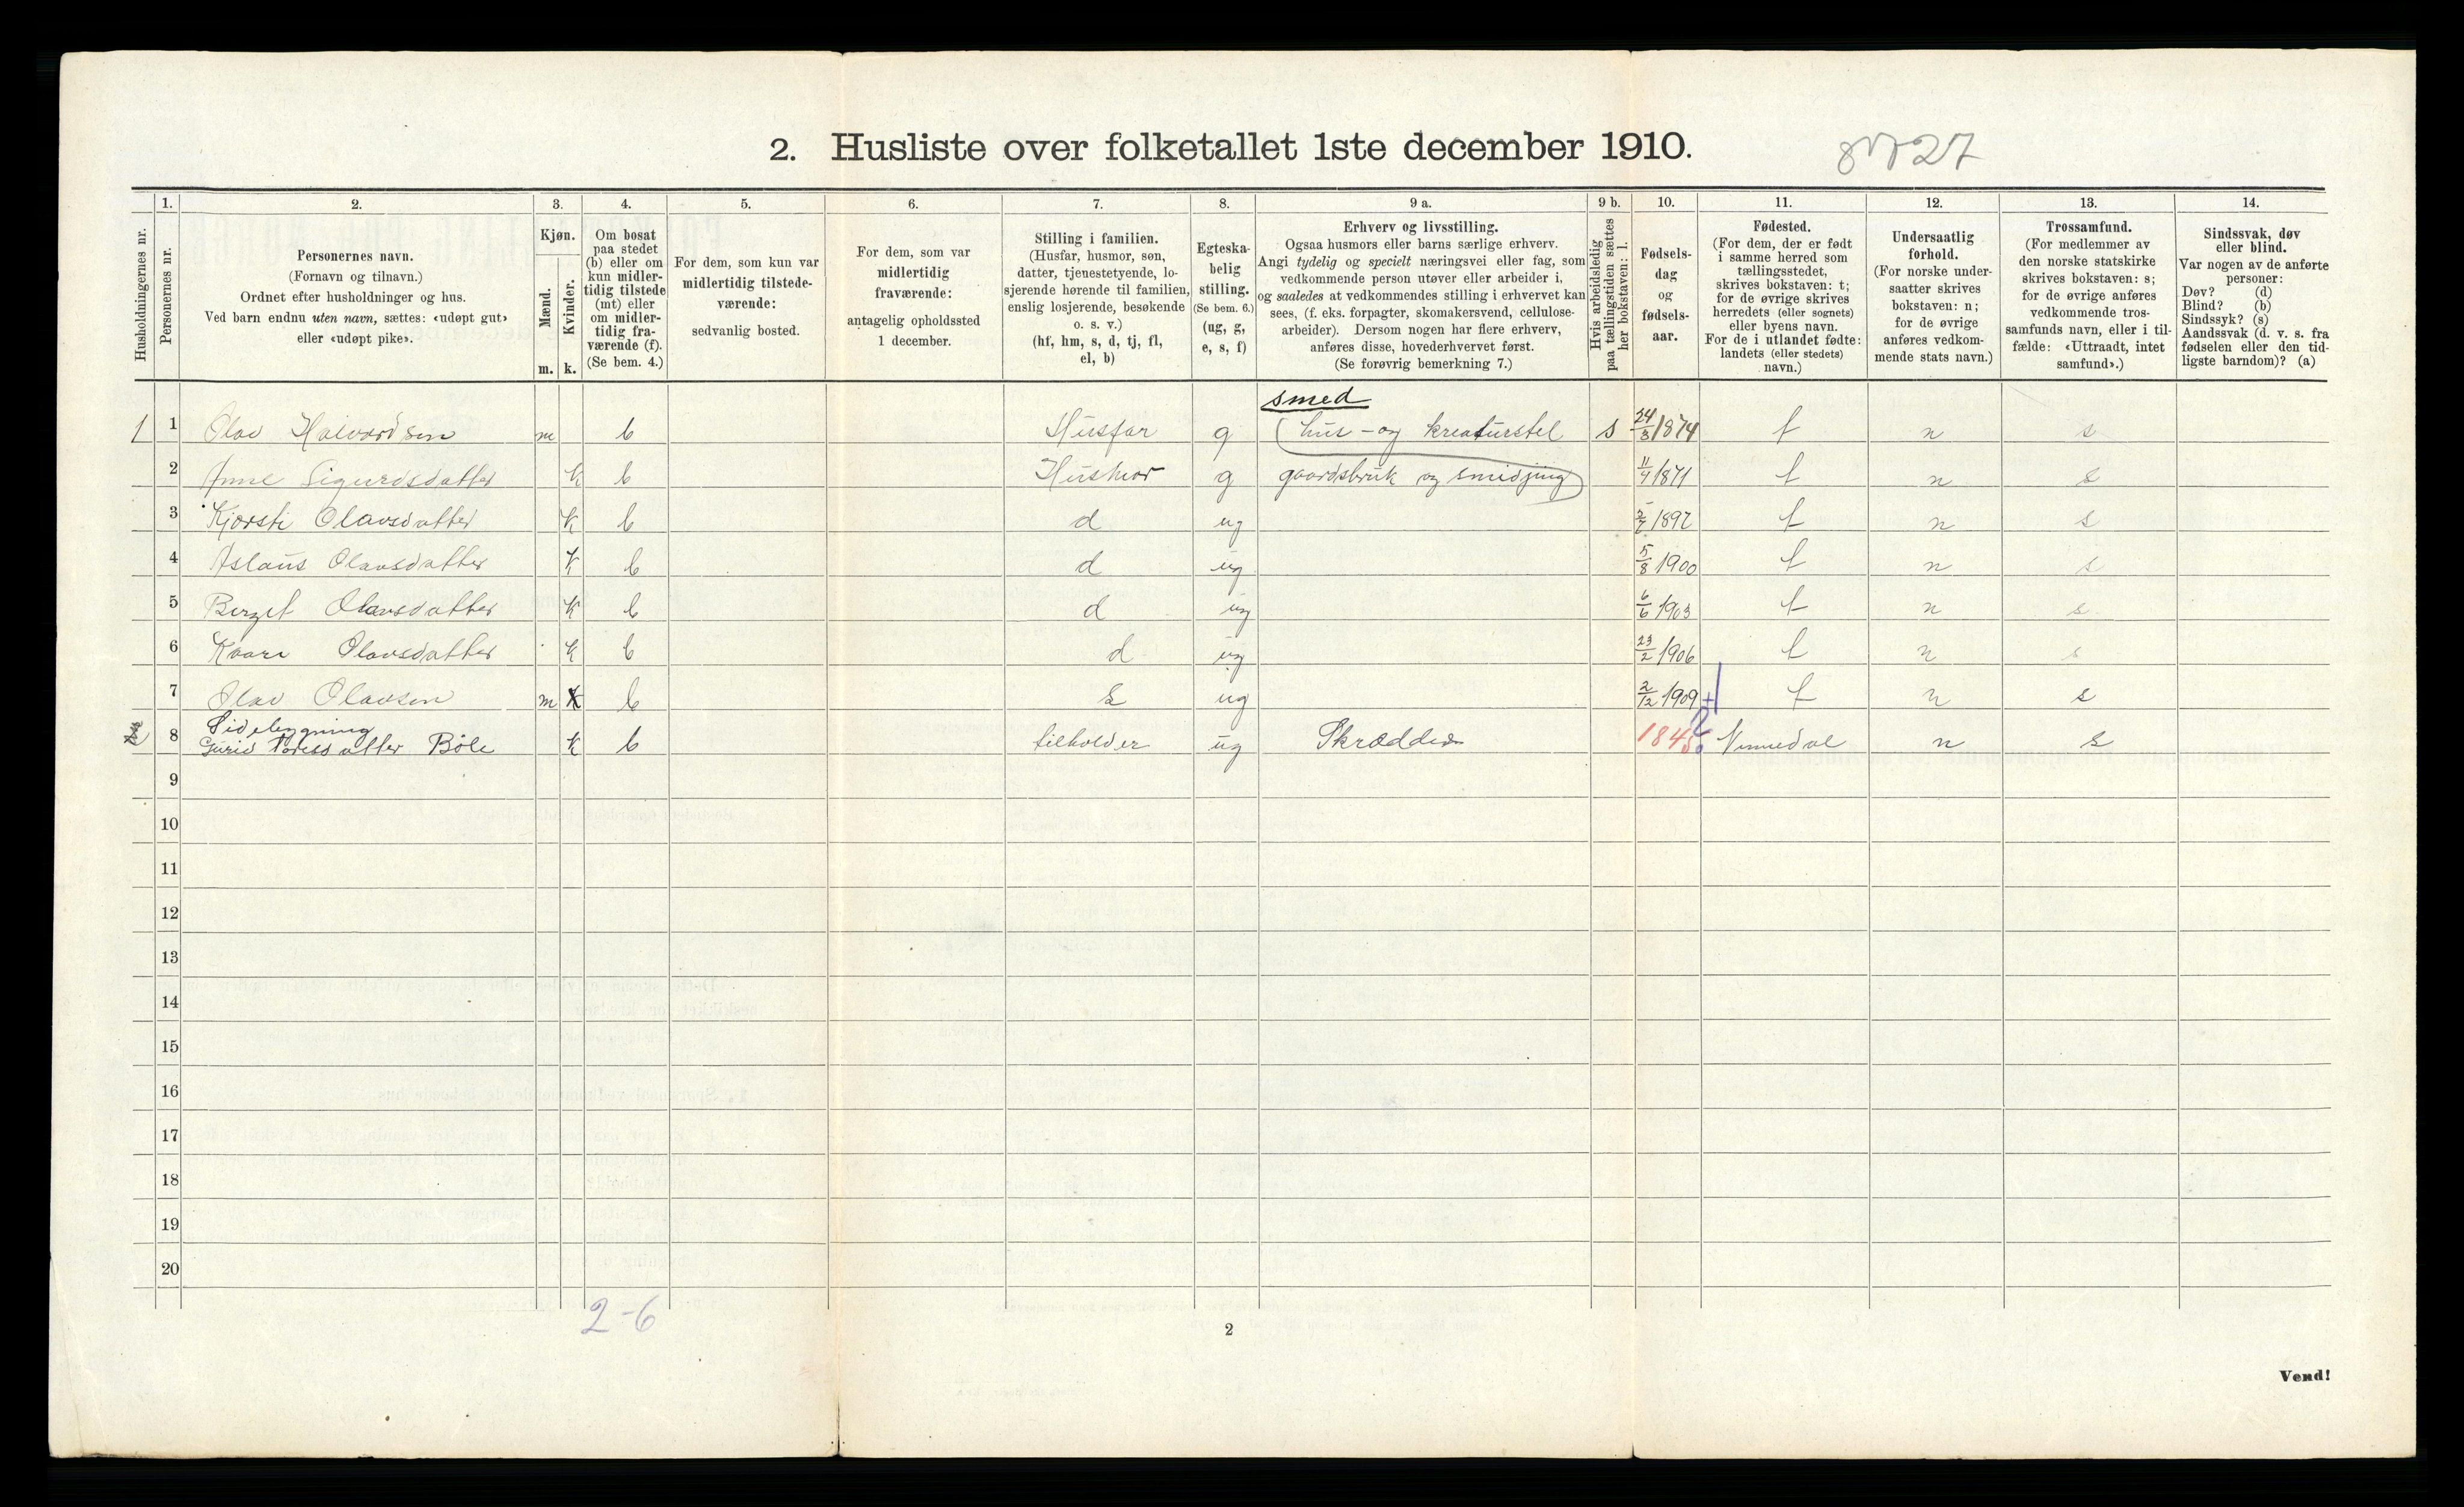 2. Husliste over folketallet 1ste december 1910.
27
1. 2. 3. 4. 5. 6. 7. 8. 9 a. 9 b. 10. 11. 12. 13. 14.
Husholdningernes nr.
Personernes nr.
Personernes navn.
(Fornavn og tilnavn.)
Ordnet efter husholdninger og hus.
Ved barn endnu uten navn, sættes: «udøpt gut»
eller «udøpt pike».
Kjøn.
Mænd.
Kvinder.
m. k.
Om bosat
paa stedet
(b) eller om
kun midler-
tidig tilstede
(mt) eller
om midler-
tidig fra-
værende (f).
(Se bem. 4.)
For dem, som kun var
midlertidig tilstede-
værende:
sedvanlig bosted.
For dem, som var
midlertidig
fraværende:
antagelig opholdssted
1 december.
Stilling i familien.
(Husfar, husmor, søn,
datter, tjenestetyende, lo-
sjerende hørende til familien,
enslig losjerende, besøkende
o. s. v.)
(hf, hm, s, d, tj, fl,
el, b)
Egteska-
belig
stilling.
(Se bem. 6.)
(ug, g,
e, s, f)
Erhverv og livsstilling.
Ogsaa husmors eller barns særlige erhverv.
Angi tydelig og specielt næringsvei eller fag, som
vedkommende person utøver eller arbeider i,
og saaledes at vedkommendes stilling i erhvervet kan
sees, (f. eks. forpagter, skomakersvend, cellulose-
arbeider). Dersom nogen har flere erhverv,
anføres disse, hovederhvervet først.
(Se forøvrig bemerkning 7.)
Hvis arbeidsledig
paa tællingstiden sættes
her bokstaven: l.
Fødsels-
dag
og
fødsels-
aar.
Fødested.
(For dem, der er født
i samme herred som
tællingsstedet,
skrives bokstaven: t;
for de øvrige skrives
herredets (eller sognets)
eller byens navn.
For de i utlandet fødte:
landets (eller stedets)
navn.)
Undersaatlig
forhold.
(For norske under-
saatter skrives
bokstaven: n;
for de øvrige
anføres vedkom-
mende stats navn.)
Trossamfund.
(For medlemmer av
den norske statskirke
skrives bokstaven: s;
for de øvrige anføres
vedkommende tros-
samfunds navn, eller i til-
fælde: «Uttraadt, intet
samfund».)
Sindssvak, døv
eller blind.
Var nogen av de anførte
personer:
Døv? (d)
Blind? (b)
Sindssyk? (s)
Aandssvak (d. v. s. fra
fødselen eller den tid-
ligste barndom)? (a)
smed
1 1 Olav Halvordsen m b Husfar g (hus- og kreaturstel s 24/3 1874 t n s
2 Anne Sigurdsdatter k b Husmor g gaardsbruk og smidjing) 11/4 1871 t n s
3 Kjorsti Olavsdatter k b d ug 2/7 1897 t n s
4 Aslaus Olavsdatter k b d ug 5/8 1900 t n s
5 Bergit Olavsdatter k b d ug 6/6 1903 t n s
6 Kaari Olavsdatter k b d ug 23/2 1906 t n s
7 Olav Olavsen m k b s ug 2/12 1909 t n s
Sidebygning
2 8 Guris Toresdatter Böle k b tilholder ug Skrædder 1845 n s
9
10
11
12
13
14
15
16
17
18
19
20
2-6
2
Vend!